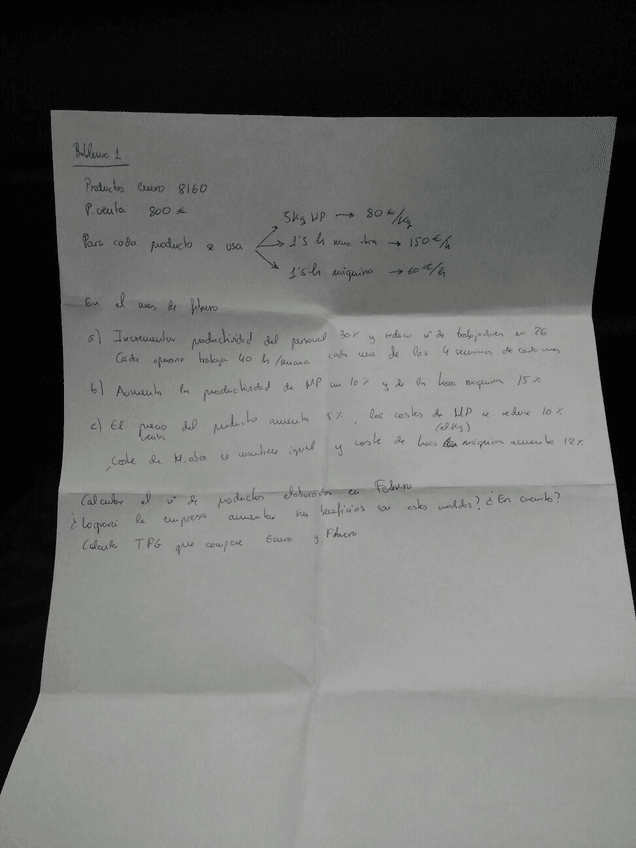 Problema 1
Productos enero 8160
P. venta 800 €
5 Kg MP → 80 €/Kg
Para cada producto se usa 1'5 h mano obra → 150 €/h
1'5 h máquina → 60 €/h
En el mes de febrero
a) Incrementar productividad del personal 30% y reducir nº de trabajadores en 26
Cada operario trabaja 40 h/semana cada una de las 4 semanas de cada mes
b) Aumenta la productividad de MP un 10% y de la hora máquina 15%
c) El precio venta del producto aumenta 5%, los costes de MP se reduce 10% (el Kg)
, Coste de M. obra se mantiene igual y coste de hora máquina aumenta 12%
Calcular el nº de productos elaborados en Febrero
¿Logrará la empresa aumentar sus beneficios con estas medidas? ¿En cuanto?
Calcula TPG que compare Enero y Febrero